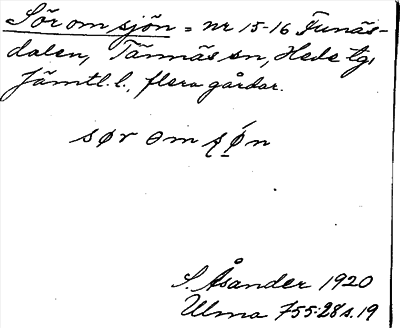 Sör om sjön = nr 15-16 Funäs-
dalen, Tännäs sn, Hede tg,
Jämtl. l., flera gårdar.
sør om ʂó̲n
S. Åsander 1920
Ulma 755:28 s. 19